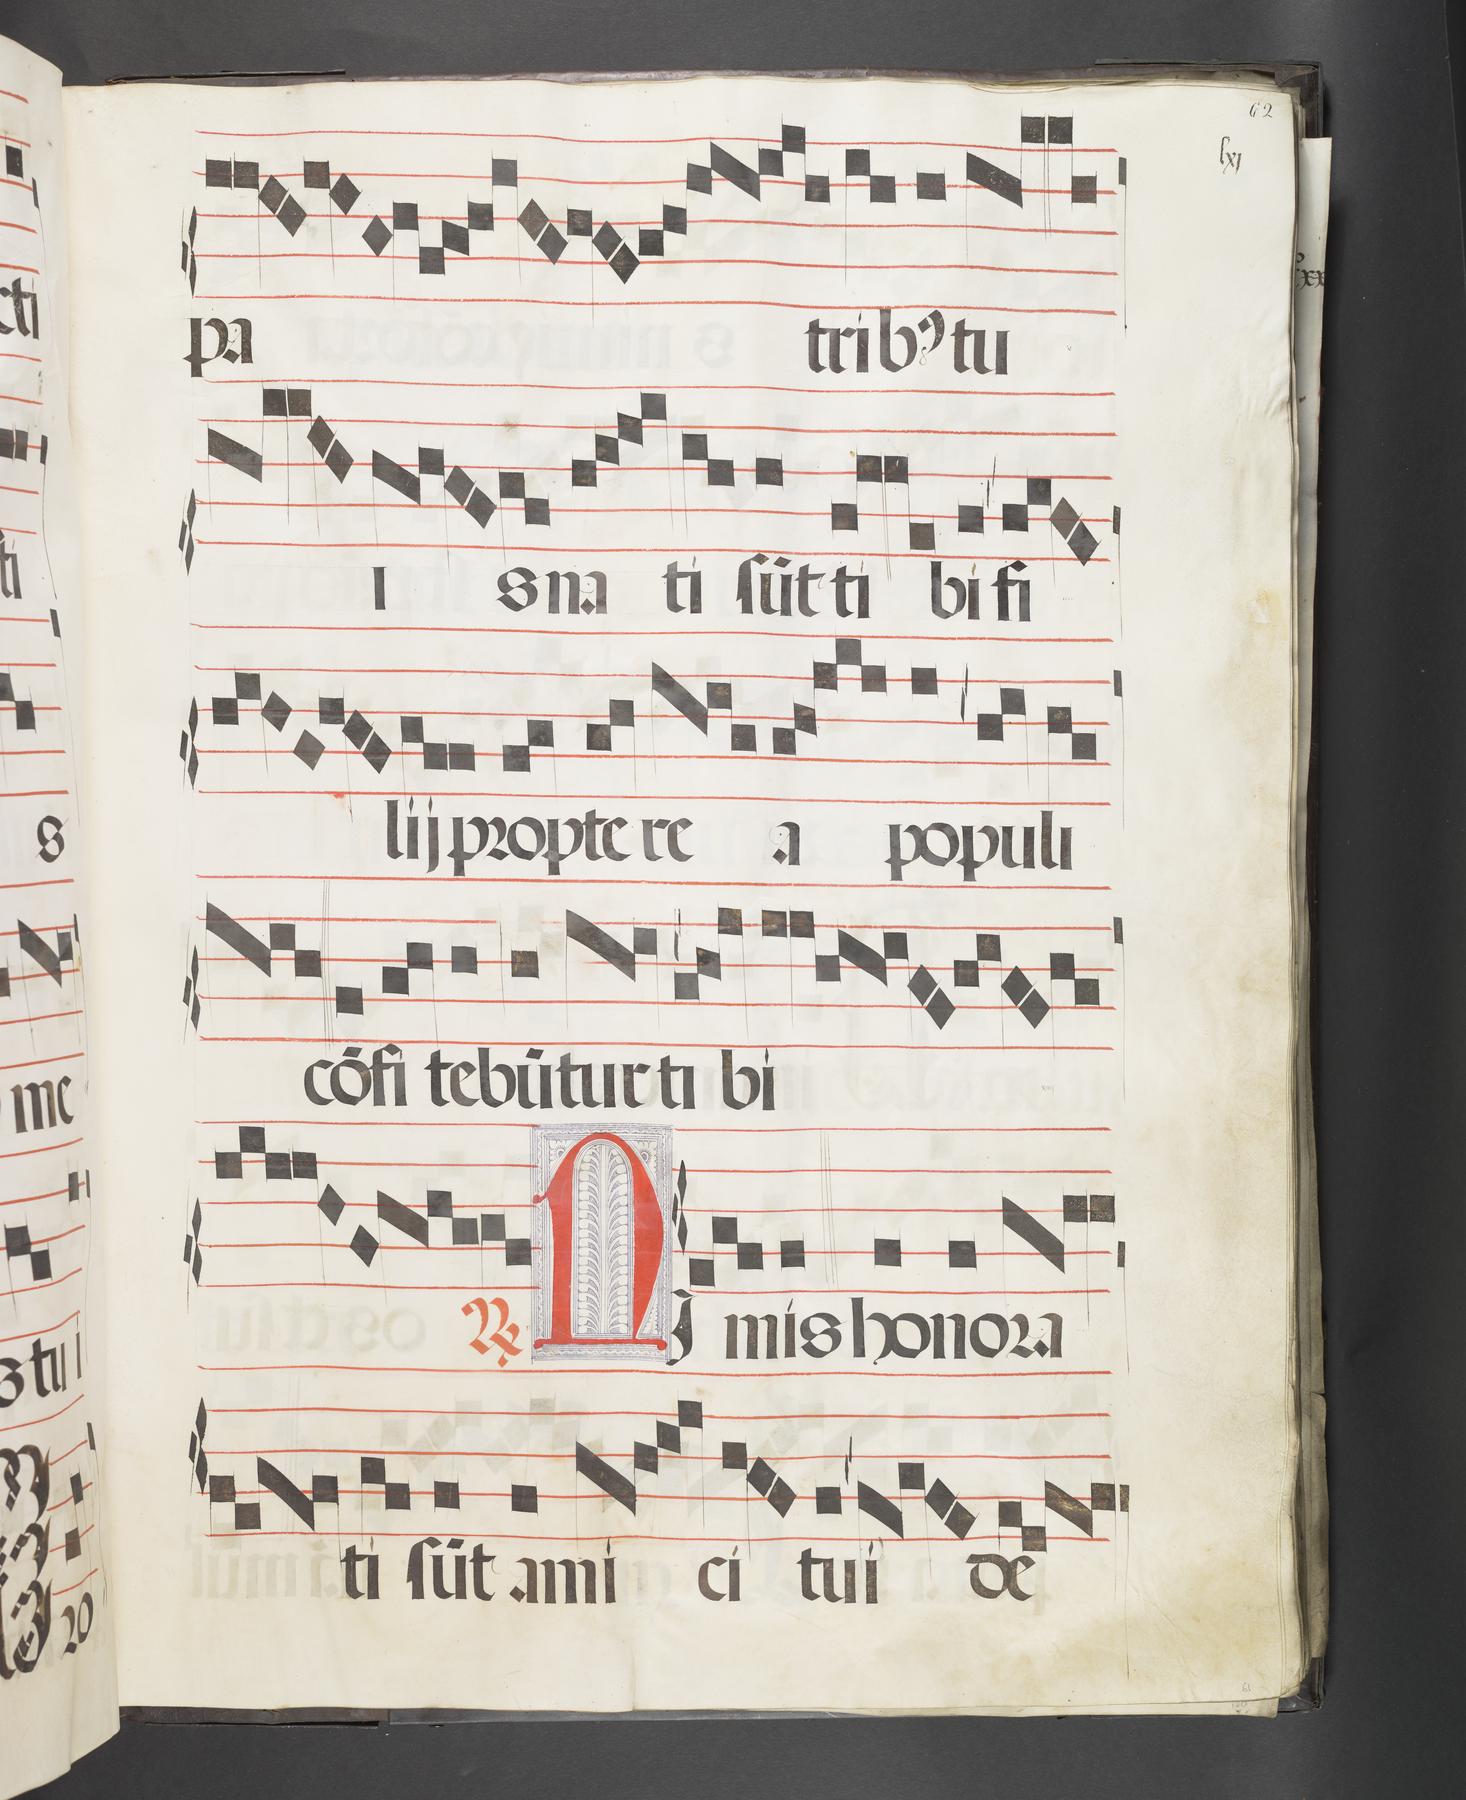 62
lxj
pa tribꝰ tu
i s na ti sūt ti bi fi
lij propte re a populi
cōfi tebūtur ti bi
℟ NJ mis honora
ti sūt ami ci tui de
cti
s
me
s tu i
61